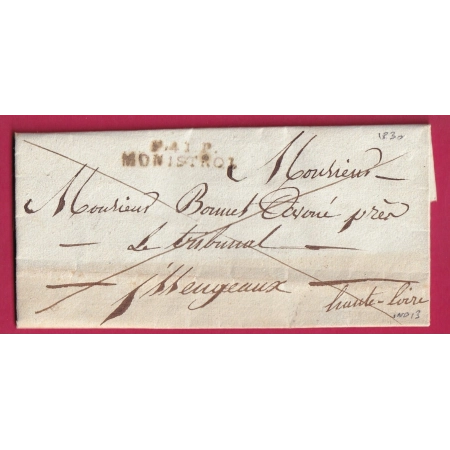 1830
P.41.P.
MONISTROL
Monsieur
Monsieur Bonnet Avoué près
Le tribunal
yssengeaux
haute-loire
IND 13